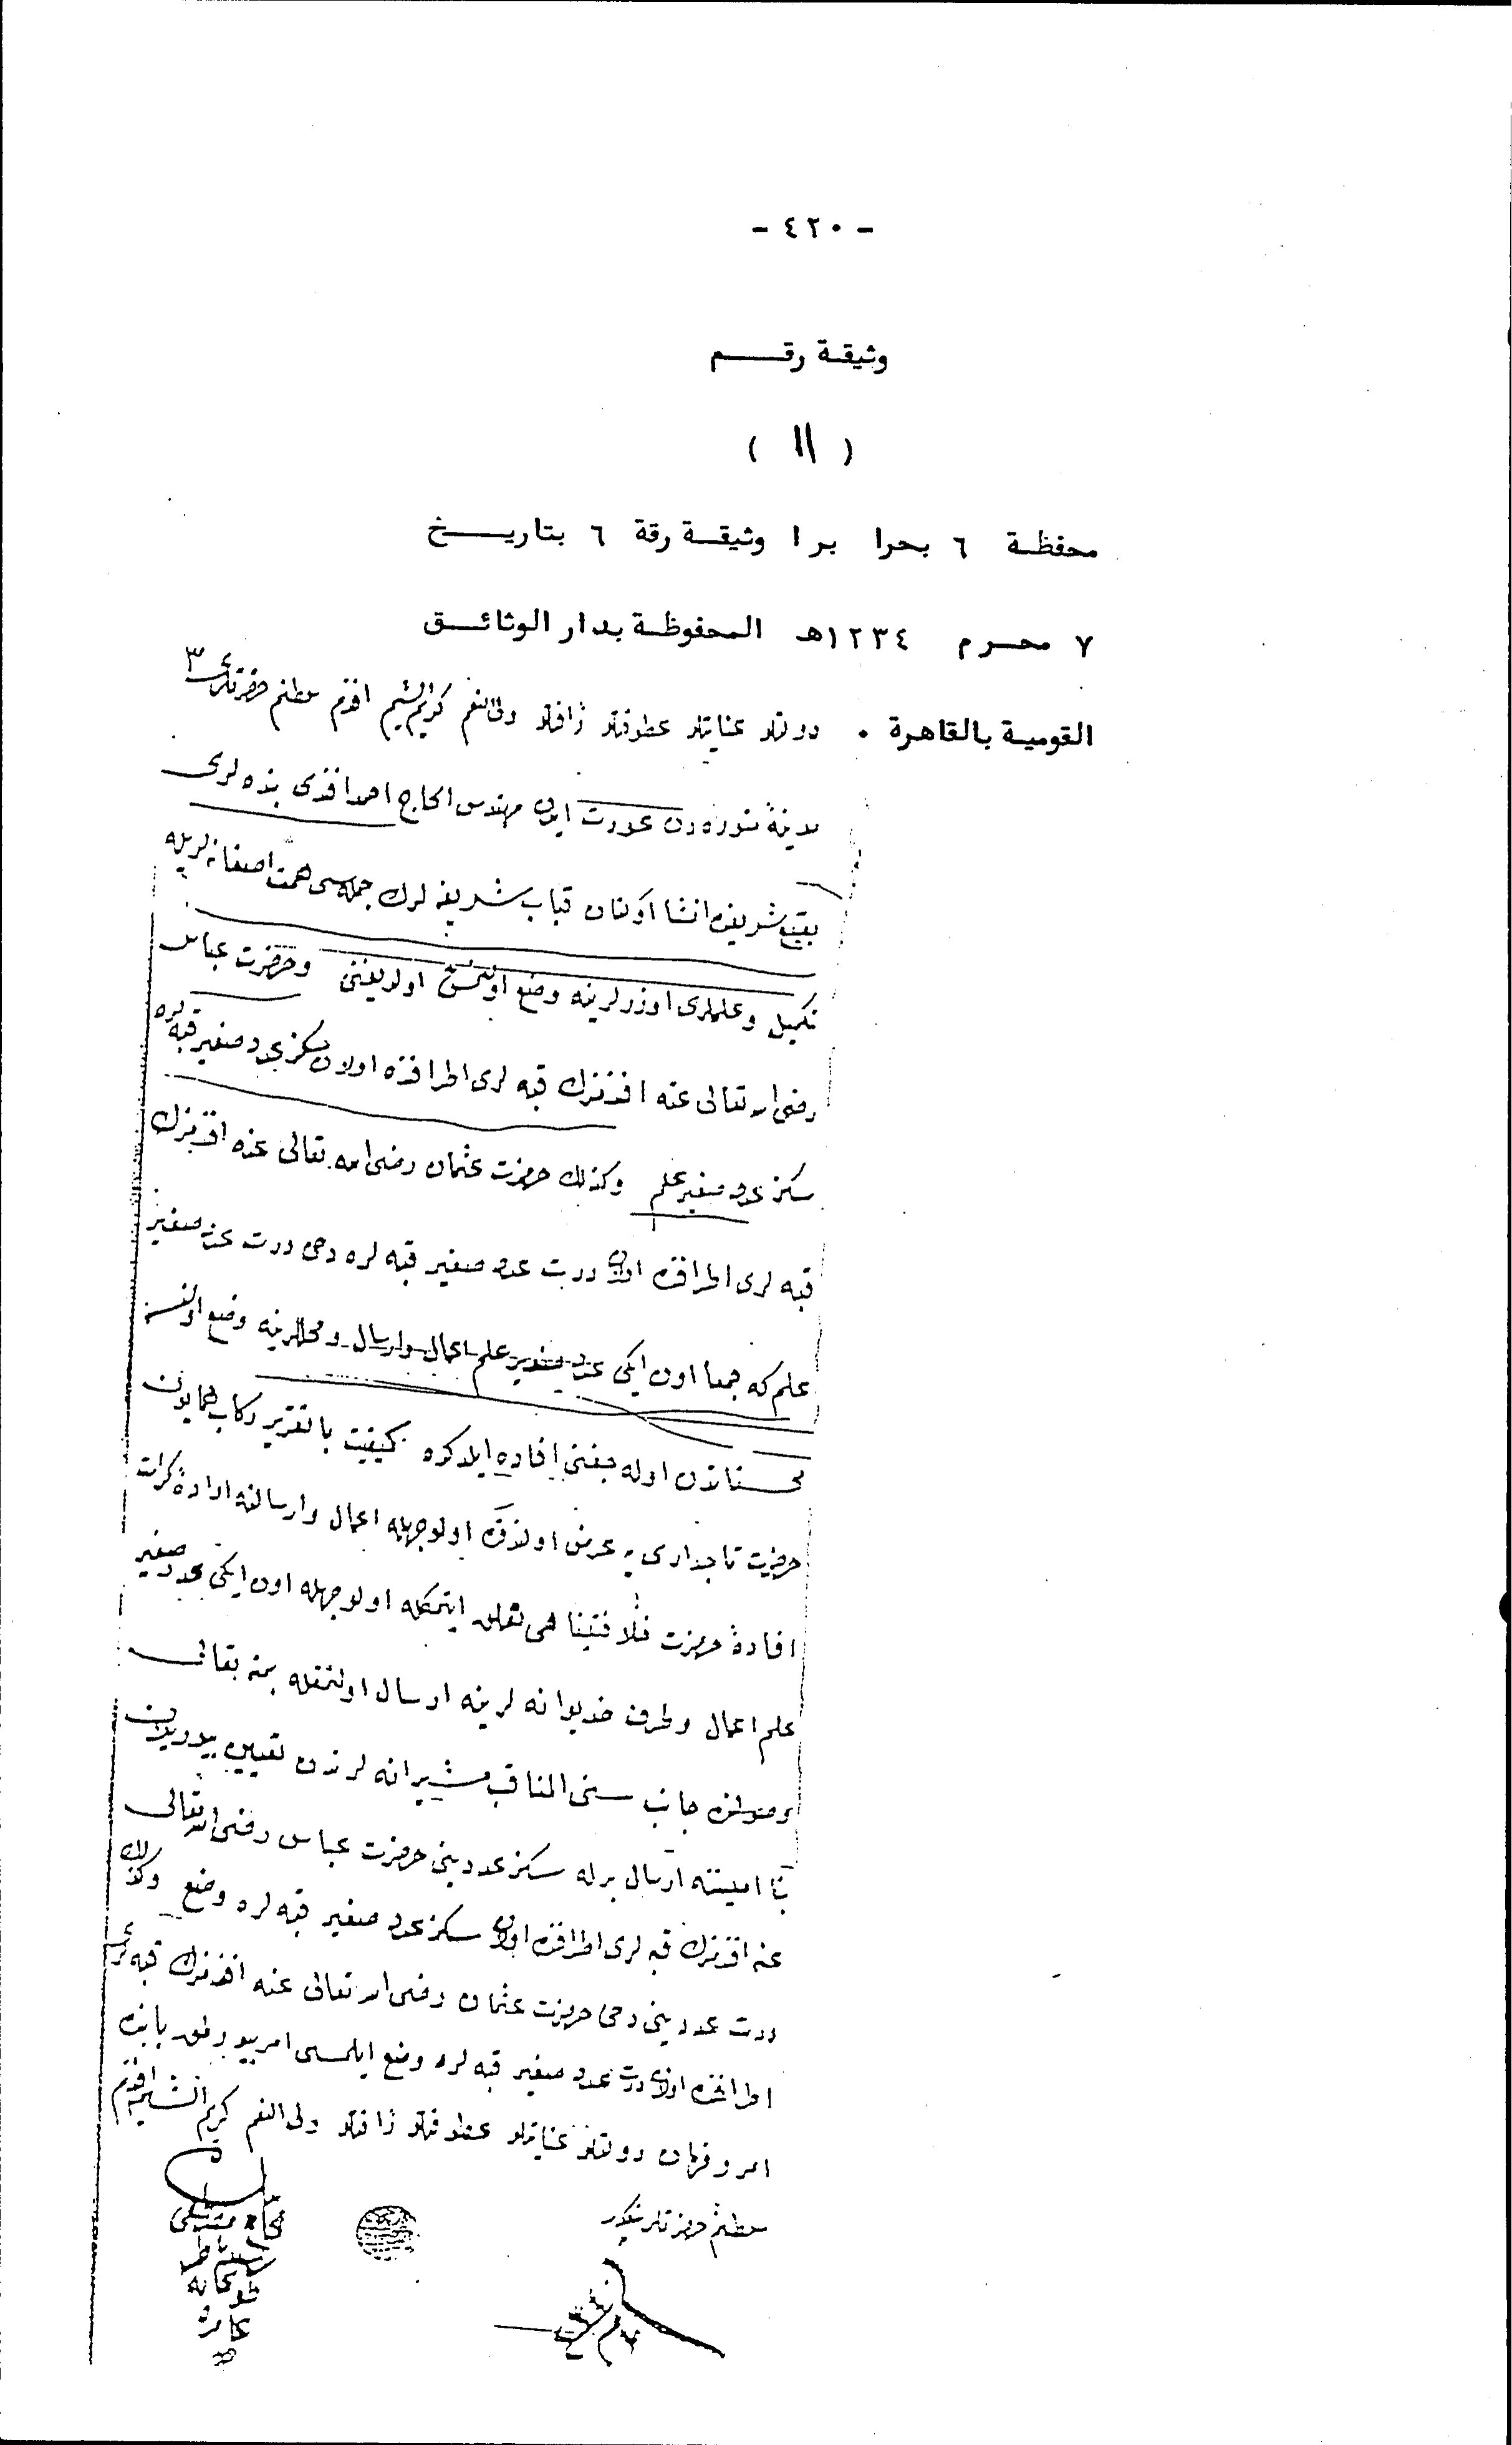 - ٤٢٠ -
وثيقة رقـــــم
( ١١ )
محفظة ٦ بحرا برا وثيقة رقة ٦ بتاريـــخ
٧ محرم ١٢٣٤هـ المحفوظة بدار الوثائق
القومية بالقاهرة .
دولتلو عنايتلو عطوفتلو رأفتلو ولى النعم كريم الشيم افندم سلطانم حضرتلرى
مدينۀ منوره دن عودت ايدن مهندس الحاج احمد افندى بنده لرى
بقيع شريفده انشا اولنان قباب شريفه لرك جمله سى همت اصفانه لريله
تكميل وعلملرى اوزرلرينه وضع اولنمش اولديغنى وحضرت عباس
رضى الله تعالى عنه افندمزك قبه لرى اطرافنده اولان سكز عدد صغير قبه لره
سكز عدد صغير علم وكذلك حضرت عثمان رضى الله تعالى عنه افندمزك
قبه لرى اطرافنده اولان درت عدد صغير قبه لره دخى درت عدد صغير
علم كه جمعا اون ايكى عدد صغير علم اعمال وارسال ومحللرينه وضع اولنسه
محسناتدن اوله جغنى افاده ايلدكده كيفيت بالتقرير ركاب همايون
حضرت تاجدارى يه عرض اولندقده اولوجهله اعمال وارسالنه ارادۀ كرامت
افادۀ حضرت خلافتپناهى تعلق ايتمكله اولوجهله اون ايكى عدد صغير
علم اعمال وطرف خديوانه لرينه ارسال اولنمغله بمنه تعالى
وصولنده جانب سنى المناقب مشيرانه لرندن تعيين بيوريلان
بنا اميننه ارسال برله سكز عددينى حضرت عباس رضى الله تعالى
عنه افندمزك قبه لرى اطرافنده اولان سكز عدد صغير قبه لره وضع وكذلك
درت عددينى دخى حضرت عثمان رضى الله تعالى عنه افندمزك قبه لرى
اطرافنده اولان درت عدد صغير قبه لره وضع ايلمسى امر بيورلمق بابنده
امر وفرمان دولتلو عنايتلو عطوفتلو رأفتلو ولى النعم كريم الشيم افندم
سلطانم حضرتلرينكدر